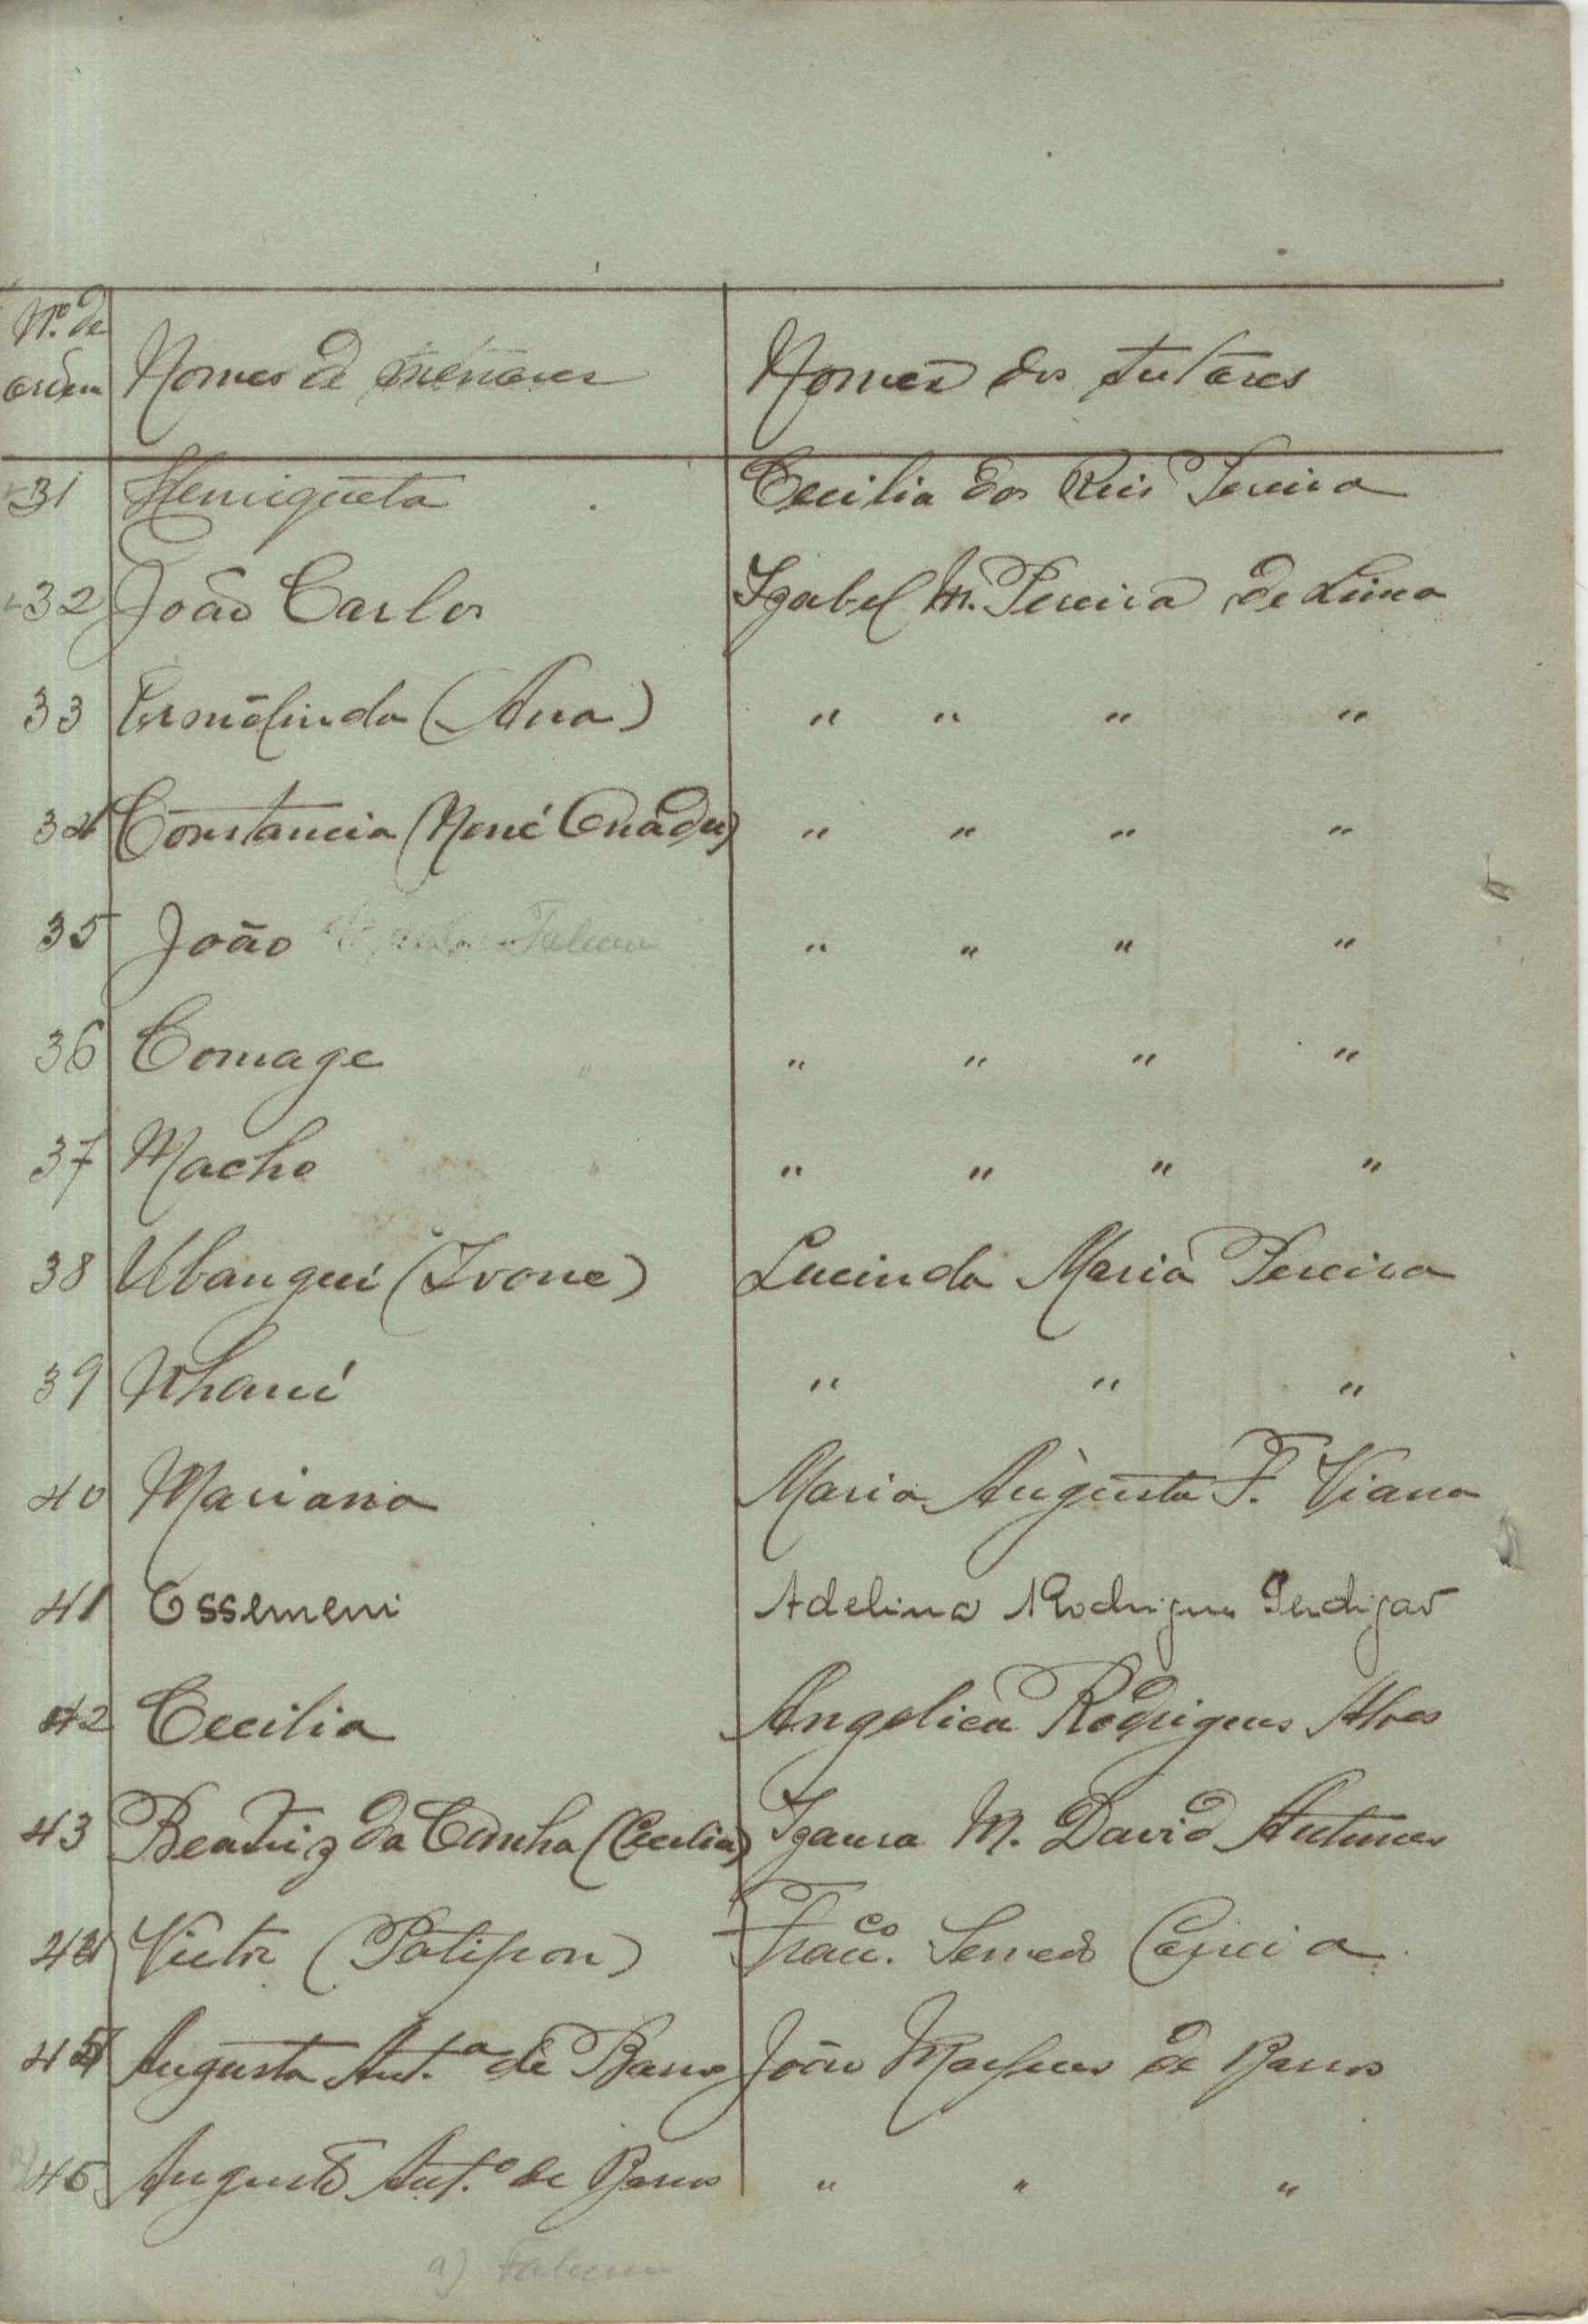 Nº. de ordem Nomes de menores Nomes dos tutores
31 Henriqueta Cecilia dos Reis Pereira
32 João Carlos Izabel M. Pereira de Lima
33 Ermelinda (Ana) " " " "
34 Constancia (René " " " "
35 João Faleceu " " " "
36 Comage " " " "
37 Macho " " " "
38 Ubangui (Ivone) Lucinda Maria Pereira
39 Nhané " " "
40 Mariana Maria Augusta F. Viana
41 Essemeni Adelina Rodrigues Perdigão
42 Cecilia Angelica Rodrigues Alves
43 Beatriz da Cunha (Cecilia) Izaura M. David Antunes
44 Victor Franco. Semedo Correia
45 Augusta Ant.ª de Barros João Marques de Barros
46 Augusto Ant.º de Barros " " "
a) Faleceu